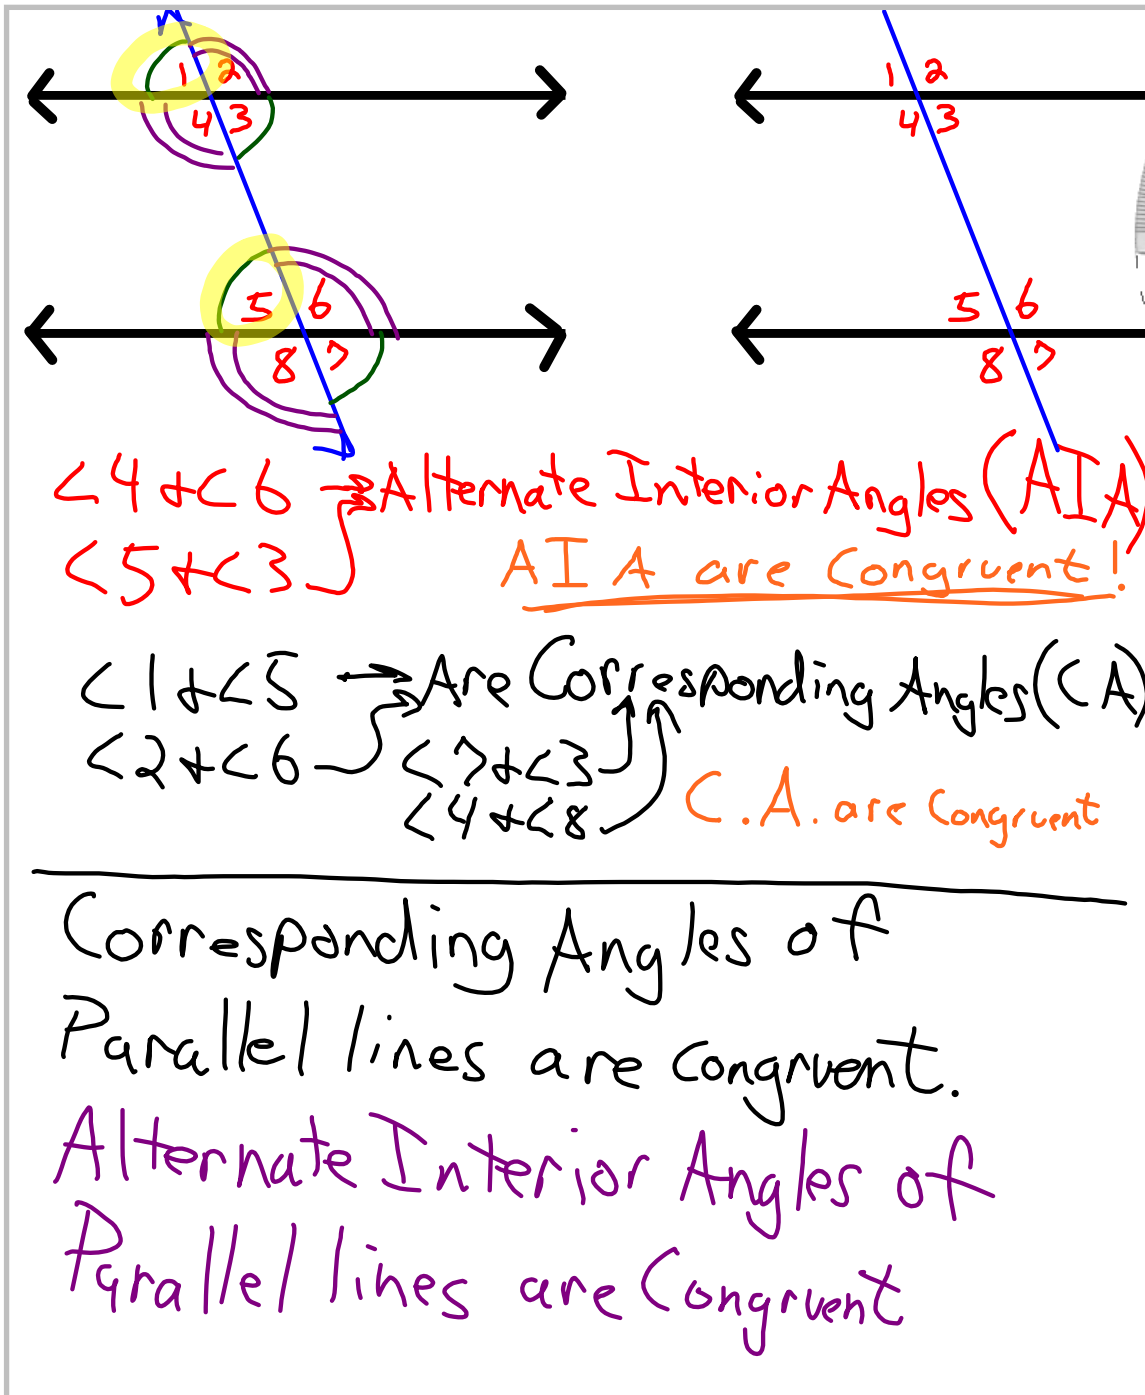 1 2 1 2
4 3 4 3
5 6 5 6
8 7 8 7
<4 + <6 → Alternate Interior Angles (AIA)
<5 + <3 AIA are Congruent!
<1 + <5 → Are Corresponding Angles (CA)
<2 + <6 <7 + <3
<4 + <8 C.A. are Congruent
Corresponding Angles of
Parallel lines are congruent.
Alternate Interior Angles of
Parallel lines are Congruent